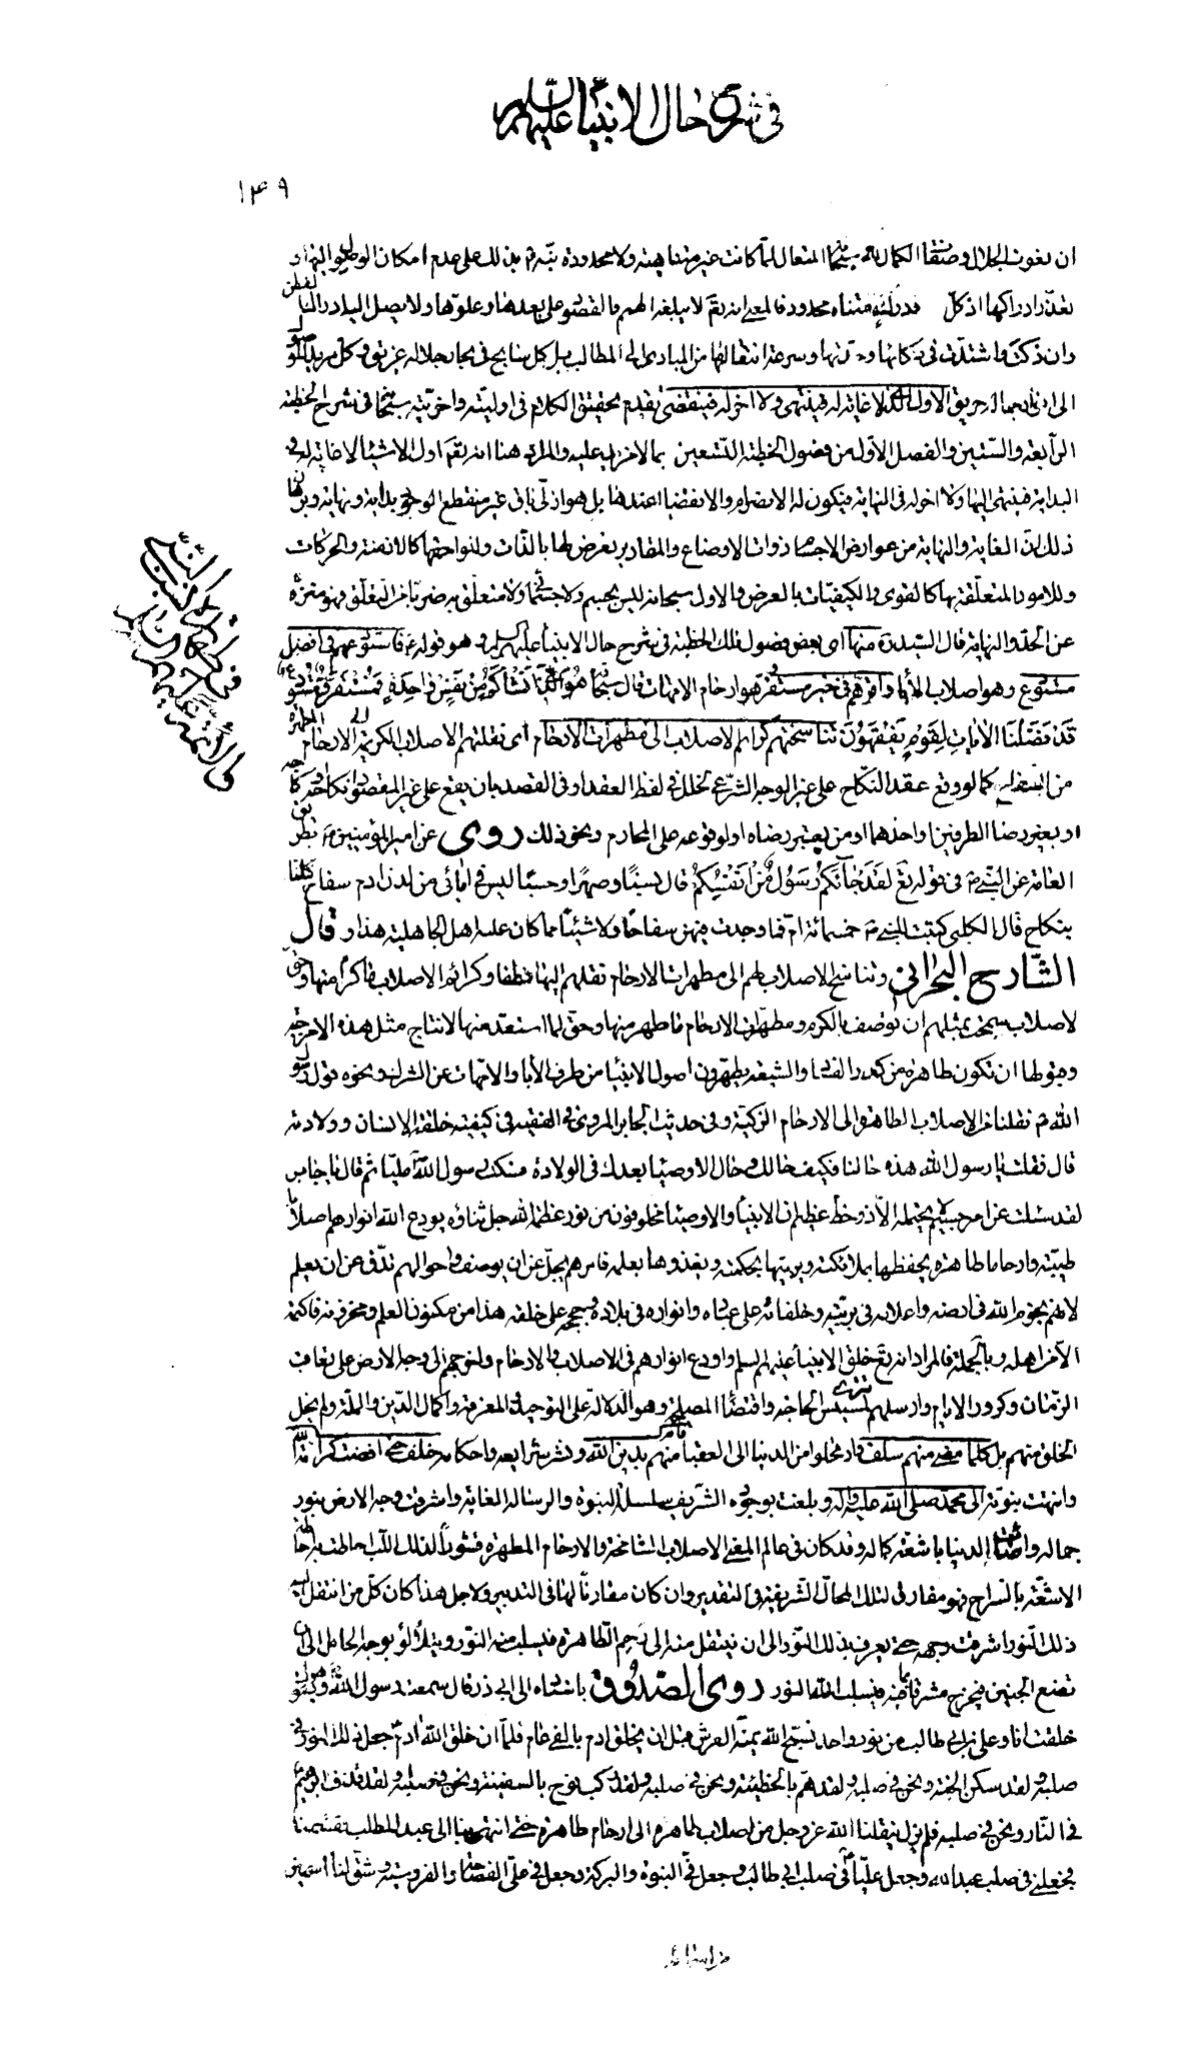 في شرح حال الانبياء عليهم السلام
١٤٩
ان نعوت الجلال وصفات الكمال له سبحانه المتعال لما كانت غير متناهية ولا محدودة نبّه بذلك على عدم امكان الوصول اليها و
تعذر ادراكها اذ كل مدرك متناه محدود فالمعنى انه تعالى لا يبلغه الهمم على بعدها وعلوها ولا يصل اليه ادراك الفطن
وان ذكت واشتدت في ذكائها وحدتها وسرعة انتقالها من المبادي الى المطالب بل كل سابح في بحار جلاله غريق وكل مريد للوصول
الى جماله حريق الاول الذي لا غاية له فينتهي ولا اخر له فينقضي تقدم تحقيق الكلام في اوليته واخريته سبحانه في شرح الخطبة
الرابعة والستين والفصل الاول من فصول الخطبة التسعين بما لا مزيد عليه والمراد هنا انه تعالى اول الاشياء لا غاية له في
البداية فينتهي اليها ولا اخر له في النهاية فيكون له الانصرام والانقضاء عندها بل هو ازلي باق غير منقطع الوجود بداية ونهاية وبرهان
ذلك ان الغاية والنهاية من عوارض الاجسام ذوات الاوضاع والمقادير يعرض لها بالذات ولواحقها كالازمنة والحركات
وللامور المتعلقة بها كالقوى والكيفيات بالعرض والاول سبحانه ليس بجسم ولا جسماني ولا متعلق به ضربا من التعلق فهو منزه
عن الحد والنهاية قال السيد ره منها اي بعض فصول تلك الخطبة في شرح حال الانبياء عليهم السلام وهو قوله ع فاستودعهم في افضل
مستودع وهو اصلاب الآباء واقرهم في خير مستقر هو ارحام الامهات قال سبحانه هُوَ الَّذِي أَنْشَأَكُمْ مِنْ نَفْسٍ وَاحِدَةٍ فَمُسْتَقَرٌّ وَمُسْتَوْدَعٌ
قَدْ فَصَّلْنَا الآيَاتِ لِقَوْمٍ يَفْقَهُونَ تناسختهم كرائم الاصلاب الى مطهرات الارحام اي نقلتهم الاصلاب الكريمة الى الارحام المطهرة
من السفاح كما لو وقع عقد النكاح على غير الوجه الشرعي لخلل في لفظ العقد او في القصد بان يقع على غير المقصود
او بغير رضا الطرفين او احدهما او من يعتبر رضاه او لوقوعه على المحارم ونحو ذلك روى عن امير المؤمنين ع بطريق
العامة عن النبي ص في قوله تع لَقَدْ جَاءَكُمْ رَسُولٌ مِنْ أَنْفُسِكُمْ قال نسبًا وصهرًا وحسبًا ليس في آبائي من لدن ادم سفاح كلنا
بنكاح قال الكلبي كتبت للنبي ص خمسمائة ام فما وجدت فيهن سفاحا ولا شيئا مما كان عليه اهل الجاهلية هذا وقال
الشارح البحراني وتناسخ الاصلاب لهم الى مطهرات الارحام نقلهم اليها نطفا وكرائم الاصلاب ما كرم منها وحق
لاصلاب سمحت بمثلهم ان توصف بالكرم ومطهرات الارحام ما طهر منها وحق لما استعد منها لانتاج مثل هذه الامزجة
وقبولها ان تكون طاهرة من كدر الفساد والشيعة يطهرون اصول الانبياء من طرف الآباء والامهات عن الشرك ونحوه قول رسول
الله ص نقلنا من الاصلاب الطاهرة الى الارحام الزكية وفي حديث الجابر المروي في الفقيه في كيفية خلقة الانسان وولادته
قال فقلت يا رسول الله هذه حالنا فكيف حالك وحال الاوصياء بعدك في الولادة فسكت رسول الله مليا ثم قال يا جابر
لقد سئلت عن امر جسيم لا يحتمله الا ذو حظ عظيم ان الانبياء والاوصياء مخلوقون من نور عظمة الله جل ثناؤه يودع الله انوارهم اصلابا
طيبة وارحاما طاهرة يحفظها بملائكته ويربيها بحكمته ويغذوها بعلمه فامرهم يجل عن ان يوصف واحوالهم تدق عن ان يعلم
لانهم نجوم الله في ارضه واعلامه في بريته وخلفائه على عباده وانواره في بلاده وحججه على خلقه هذا من مكنون العلم ومخزونه فاكتمه
الا من اهله وبالجملة فالمراد انه تع خلق الانبياء عليهم السلام واودع انوارهم في الاصلاب والارحام واخرجهم الى وجه الارض على تعاقب
الزمان وكرور الايام وارسلهم لمسيس الحاجة واقتضاء المصلحة وهو الدلالة على التوحيد والمعرفة واكمال الدين والملة ولم يخل
الخلق منهم بل كلما مضى منهم سلف وارتحلوا من الدنيا الى العقبى قام منهم بدين الله ونشر شرايعه واحكامه خلف حتى افضت كرامة الله
وانتهت نبوته الى محمد صلى الله عليه واله وبلغت بوجوده الشريف سلسلة النبوة والرسالة الغاية واشرقت وجه الارض بنور
جماله واضائت الدنيا باشعة كماله وقد كان في عالم المعنى الاصلاب الشامخة والارحام المطهرة قشورًا لذلك اللب
الاشعة بالسراج فهو مفارق لتلك المحال الشريفة في التقدير وان كان مقارنا لها في التدبير ولاجل هذا كان كل من انتقل اليه
ذلك النور اشرقت وجهه حتى يعرف بذلك النور الى ان ينتقل منه الى رحم الطاهرة فيسلب منه النور ويتلألؤ بوجه الحامل الى ان
تضع الجنين فيخرج مشرقا فيسلب الام النور روى الصدوق باسناده الى ابي ذر قال سمعت رسول الله ص وهو يقول
خلقت انا وعلي بن ابي طالب من نور واحد نسبح الله يمنة العرش قبل ان يخلق ادم بالفي عام فلما ان خلق الله ادم جعل ذلك النور في
صلبه ولقد سكن الجنة ونحن في صلبه ولقد هم بالخطيئة ونحن في صلبه ولقد ركب نوح بالسفينة ونحن في صلبه ولقد قذف ابراهيم
في النار ونحن في صلبه فلم يزل ينقلنا الله عز وجل من اصلاب طاهرة الى ارحام طاهرة حتى انتهى بنا الى عبد المطلب فقسمنا
فجعلني في صلب عبد الله وجعل عليّا في صلب ابي طالب وجعل في النبوة والبركة وجعل في علي الفصاحة والفروسية وشق لنا اسمين
من اسمائه